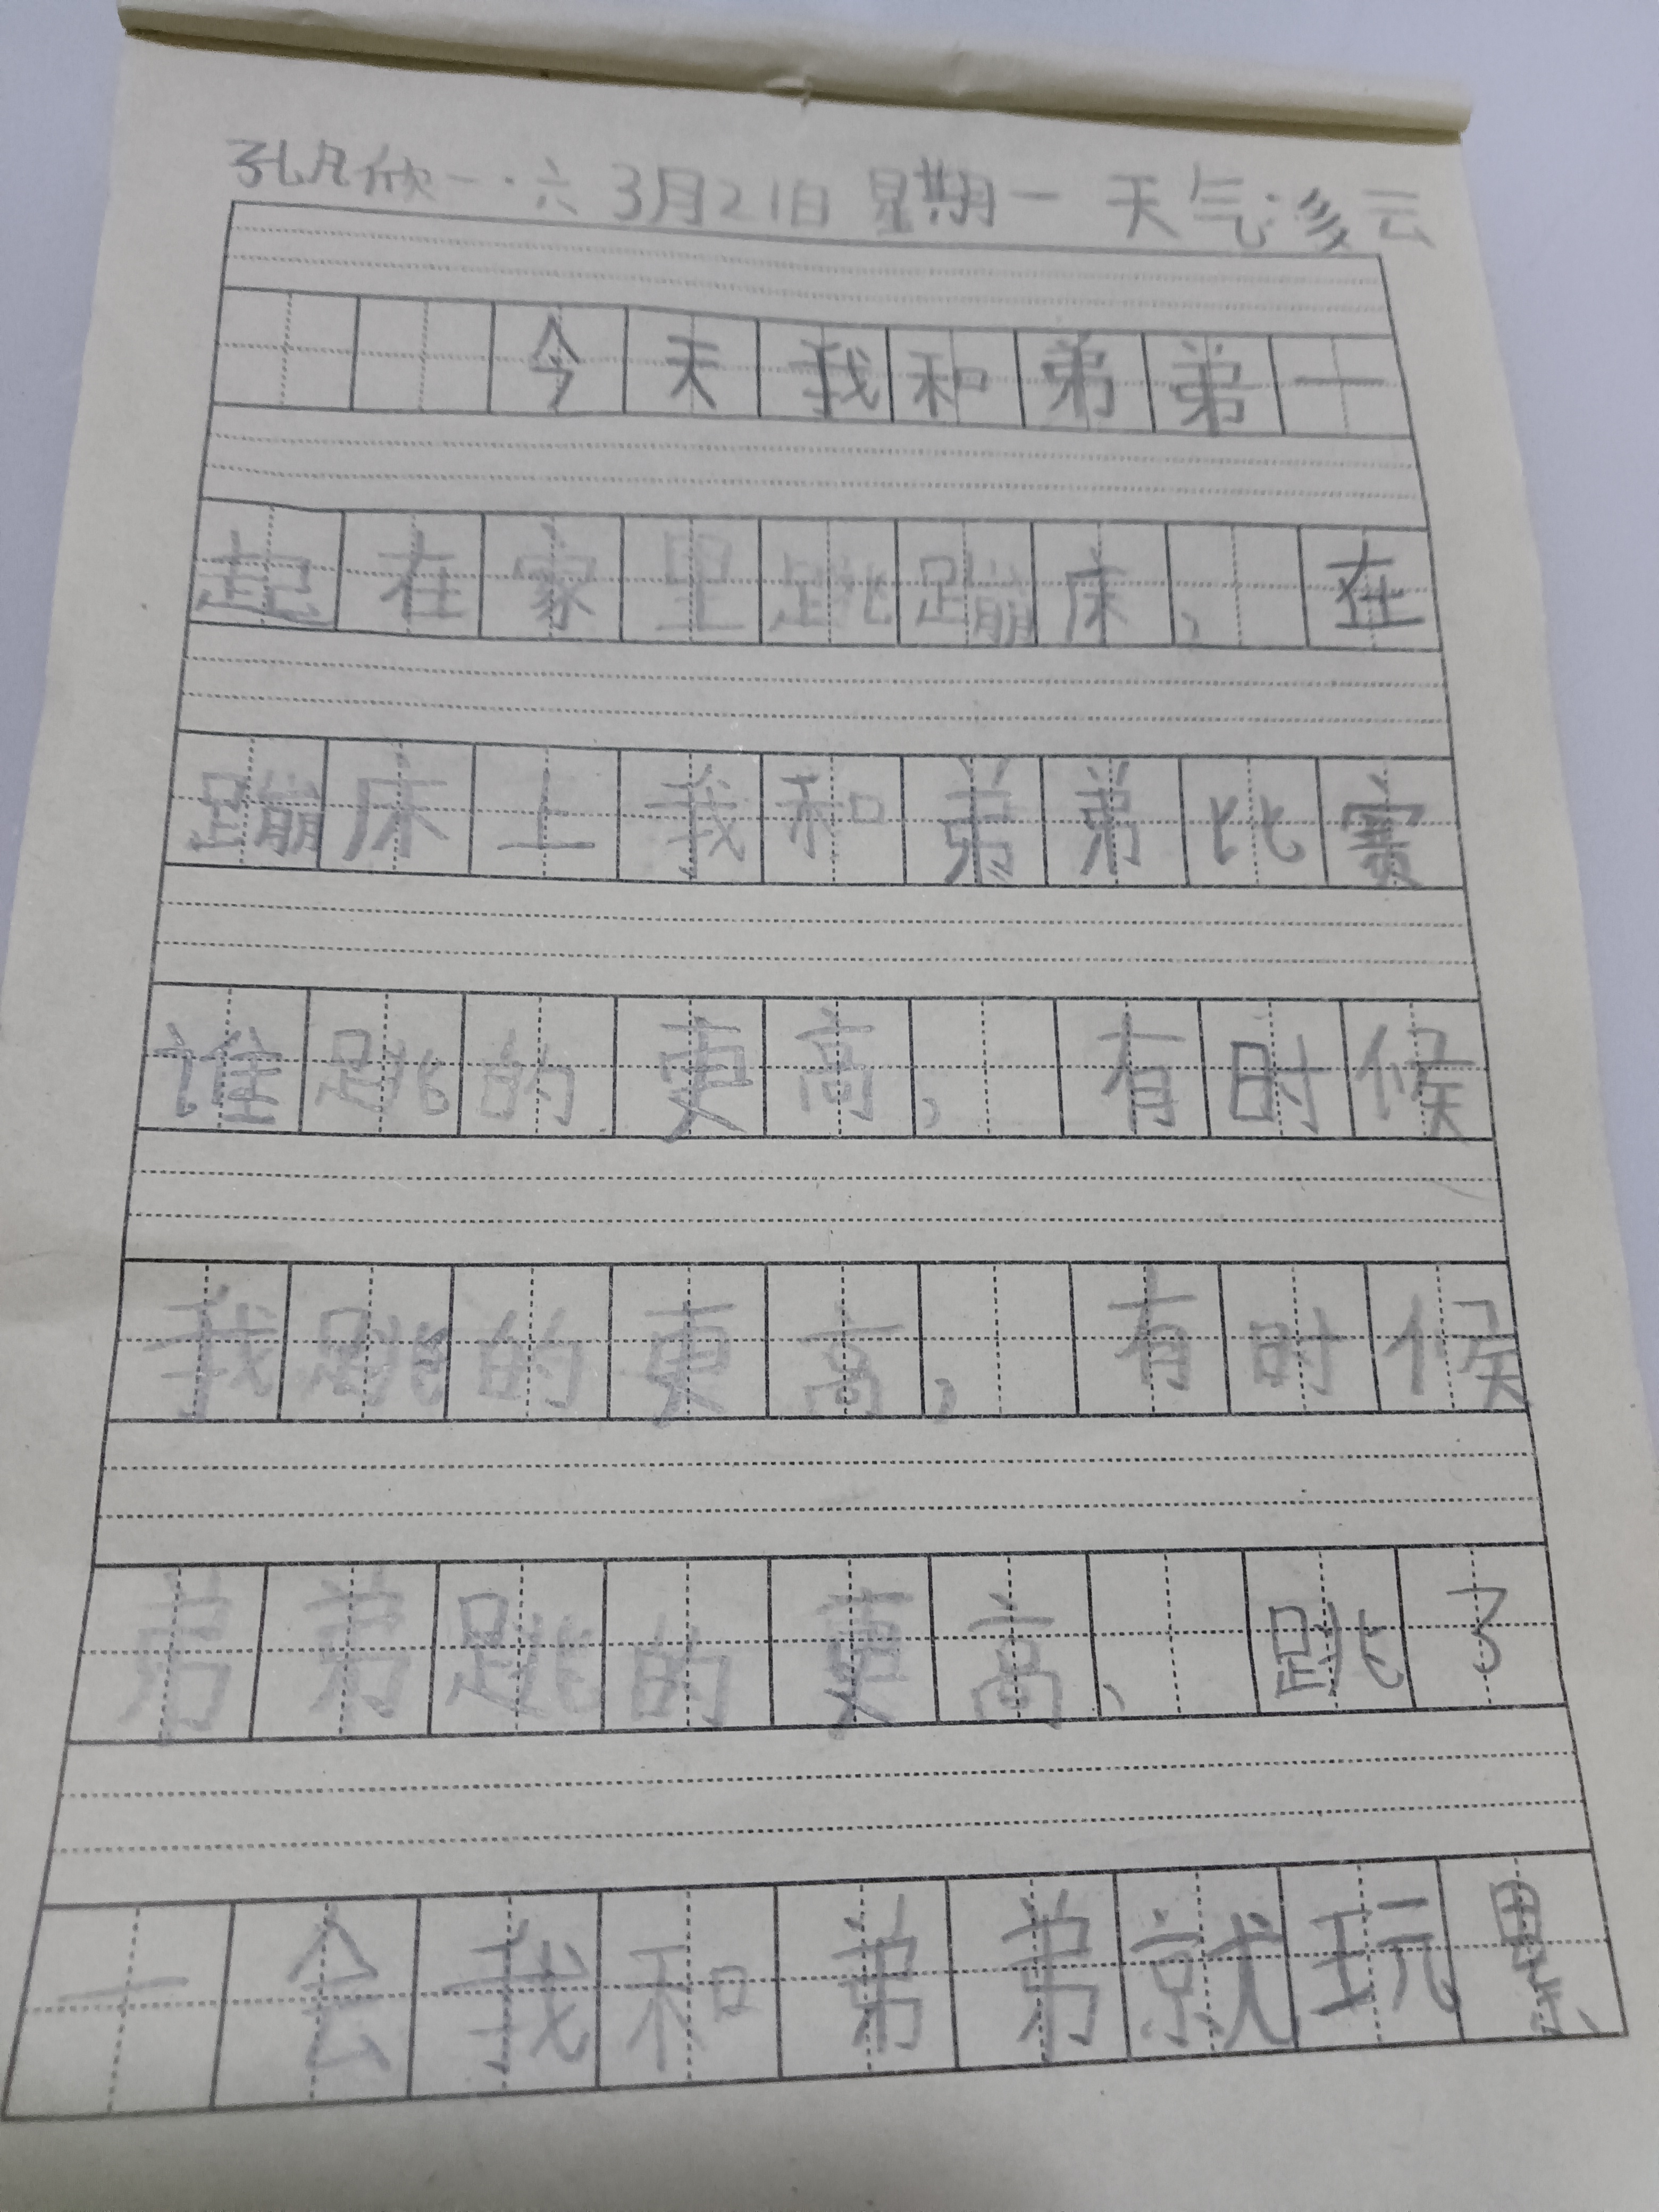 孔凡欣一·六 3月21日 星期一 天气:多云
今天我和弟弟一
起在家里跳蹦床,在
蹦床上我和弟弟比赛
谁跳的更高,有时候
我跳的更高,有时候
弟弟跳的更高、跳了
一会我和弟弟就玩累